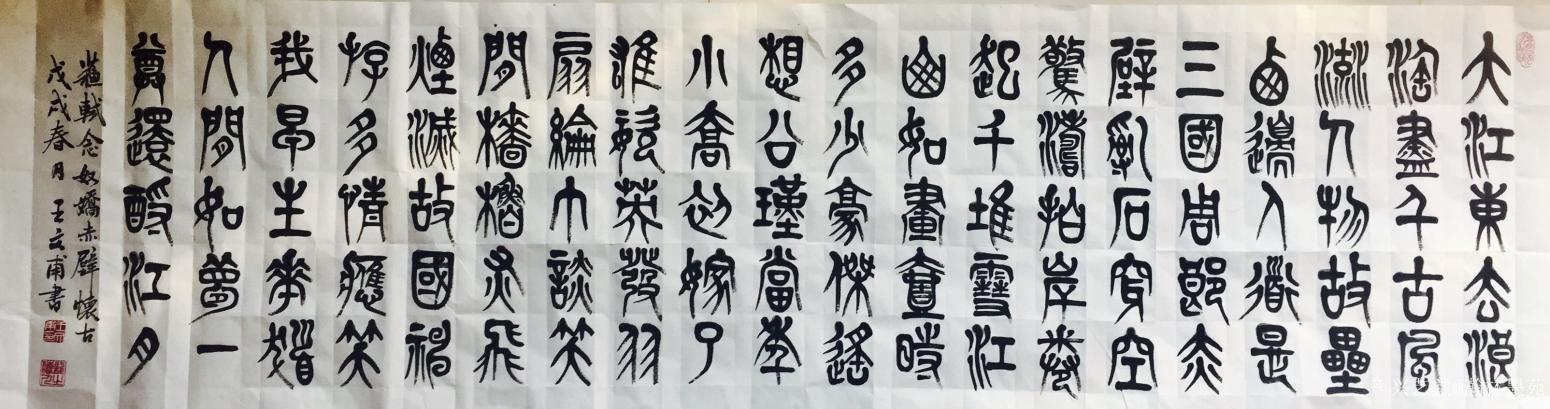 大江東去浪
淘盡千古風
流人物故壘
西邊人道是
三國周郎赤
壁亂石穿空
驚濤拍岸卷
起千堆雪江
山如畫壹時
多少豪傑遙
想公瑾當年
小喬初嫁了
雄姿英發羽
扇綸巾談笑
間檣櫓灰飛
煙滅故國神
游多情應笑
我早生華髮
人間如夢一
尊還酹江月
蘇軾念奴嬌赤壁懷古
戊戌春月王文甫書